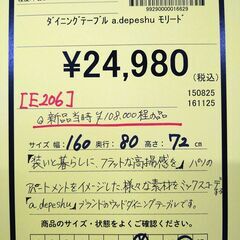 99290000016629
ダイニングテーブル a.depeshu モリード
¥24,980
(税込)
[E206]
150825
161125
新品当時¥108,000程の品
サイズ 幅 160 奥行 80 高さ 72 cm
「装いと暮らしに、フラットな高揚感を」パリの
アパートメントをイメージした、様々な素材をミックスコーデする
「a depeshu」ブランドのウッドダイニングテーブルです。